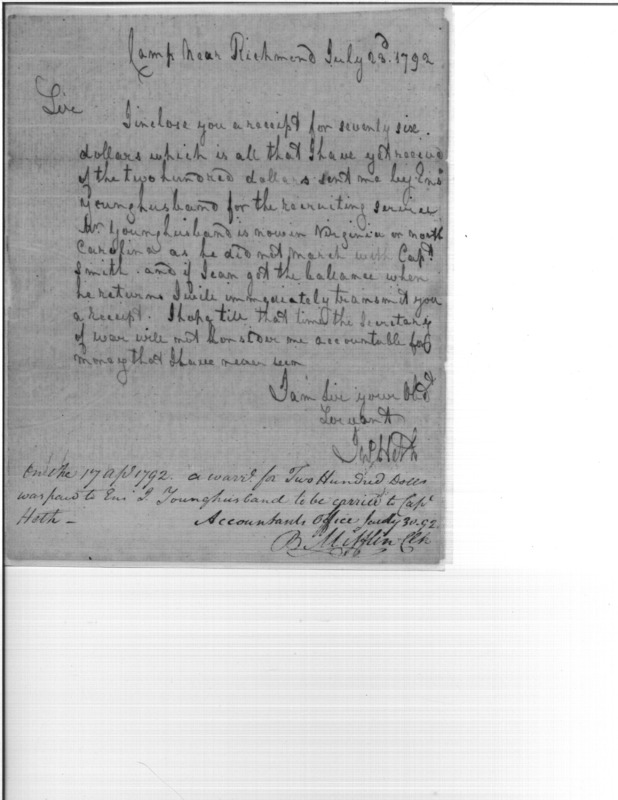 Camp Near Richmond July 23d. 1792
Sire
I inclose you a receipt for seventy six
dollars which is all that I have yet receivd
of the two hundred dollars sent me by Ensn
Younghusband for the recruiting service
Mr. Younghusband is now in Virginia or north
Carolina as he did not march with Capt.
Smith. and if I can get the ballance when
he returns I will immediately transmit you
a receipt. I hope till that time the Secretary
of war will not Consider me accountable for
money that I have never seen
I am Sire your Obd.
Servant
Heth
On the 17 Apl 1792. a warrt. for Two Hundred Dolls
was paid to Ens. I. Younghusband to be carried to Capt
Heth –
Accountants Office July 30. 92.
B. Mifflin Clk